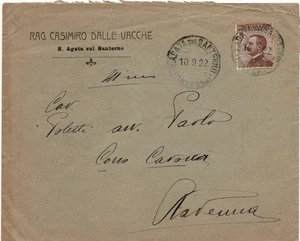 RAG. CASIMIRO DALLE VACCHE
S. Agata sul Santerno
10.9.22
Cav.
Poletti avv. Paolo
Corso Cavour
Ravenna